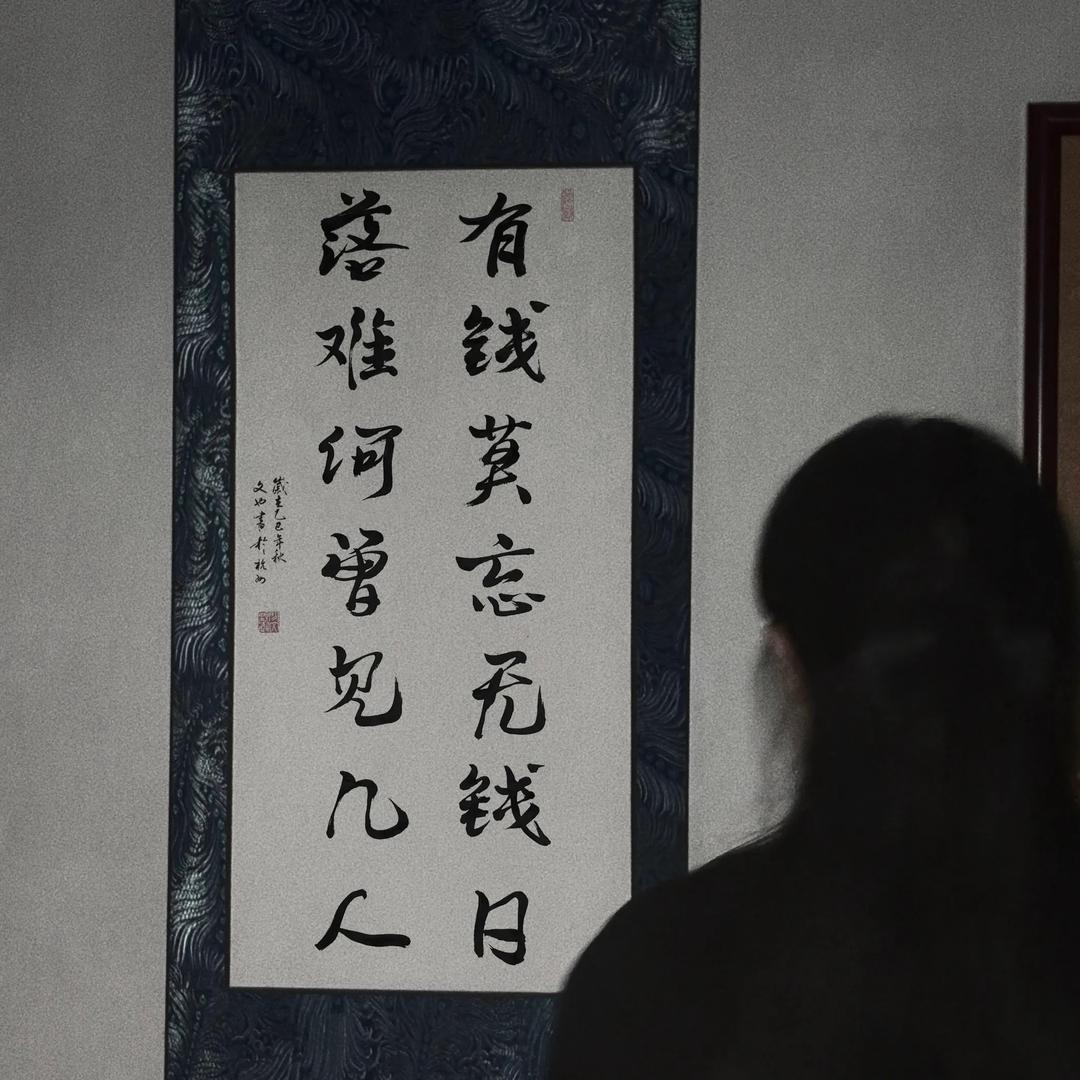 有钱莫忘无钱日
落难何曾见几人
岁在乙巳年秋
文如書於杭州